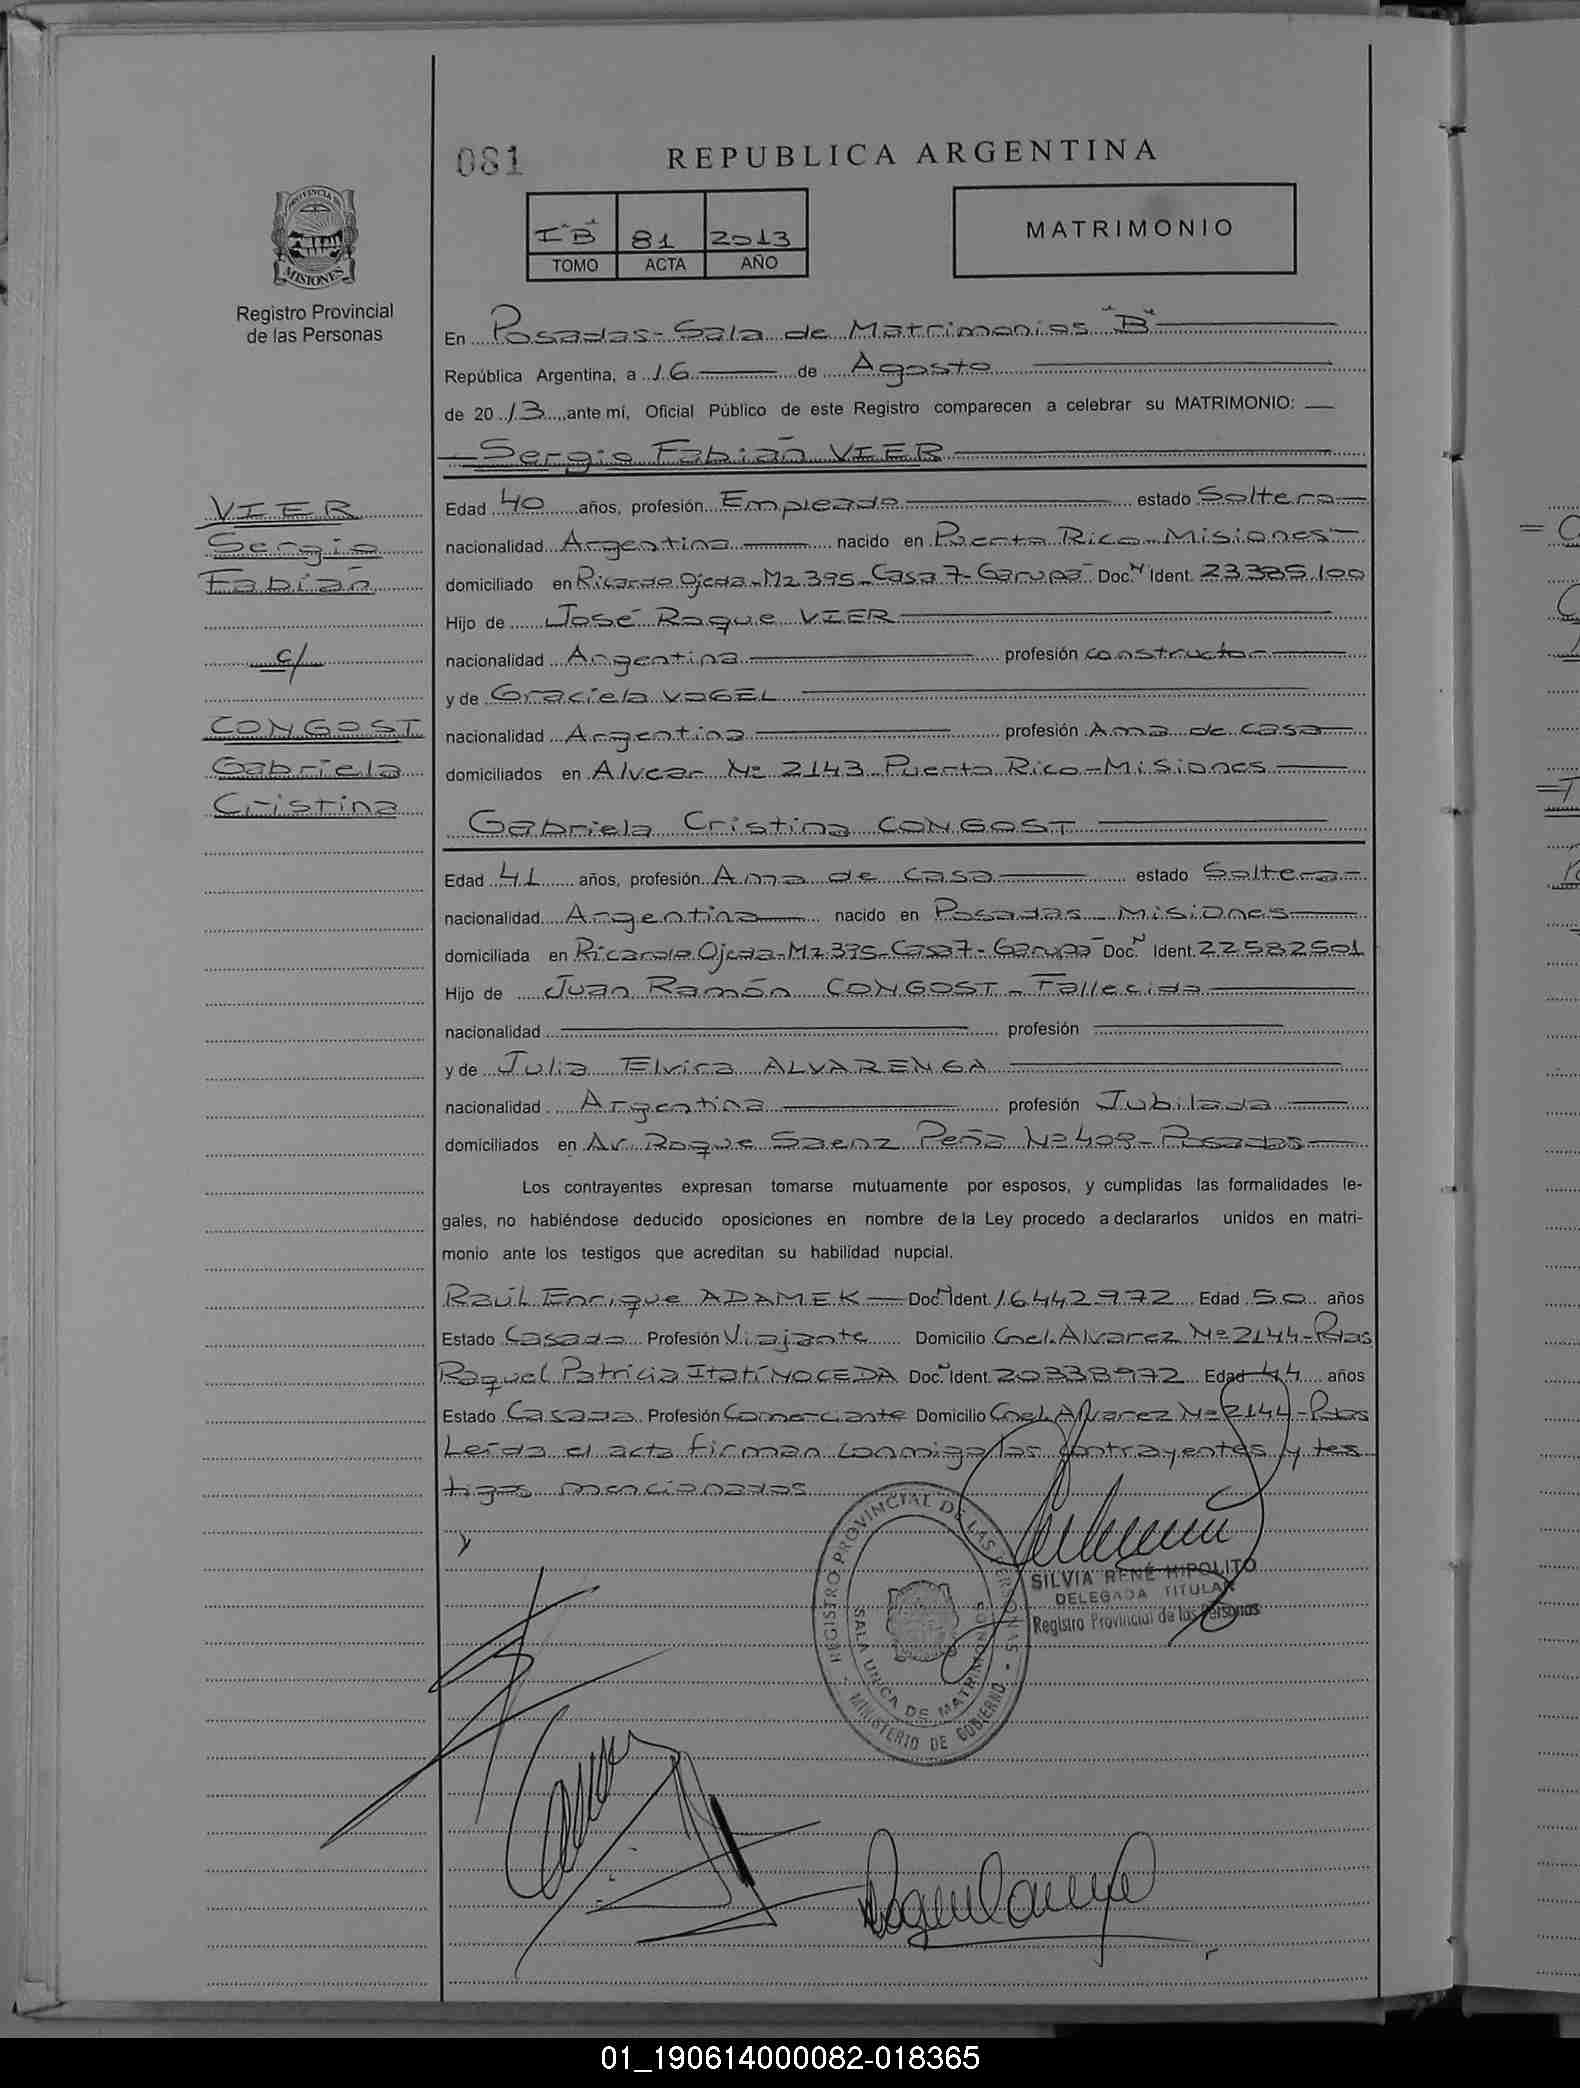 081
REPUBLICA ARGENTINA
PROVINCIA DE
MISIONES
Registro Provincial
de las Personas
I "B" 81 2013
TOMO ACTA AÑO
MATRIMONIO
En Posadas - Sala de Matrimonios "B"
República Argentina, a 16 de Agosto
de 20 13 ante mí, Oficial Público de este Registro comparecen a celebrar su MATRIMONIO:
Sergio Fabián VIER
VIER
Sergio
Fabián
c/
CONGOST
Gabriela
Cristina
Edad 40 años, profesión Empleado estado Soltero
nacionalidad Argentina nacido en Puerto Rico - Misiones
domiciliado en Ricardo Ojeda - Mz 395 - Casa 7 - Garupá Doc. N Ident. 23.385.100
Hijo de José Roque VIER
nacionalidad Argentina profesión constructor
y de Graciela VOGEL
nacionalidad Argentina profesión Ama de casa
domiciliados en Alvear Nº 2143 - Puerto Rico - Misiones
Gabriela Cristina CONGOST
Edad 41 años, profesión Ama de casa estado Soltera
nacionalidad Argentina nacido en Posadas - Misiones
domiciliada en Ricardo Ojeda - Mz 395 - Casa 7 - Garupá Doc. N Ident. 22582501
Hijo de Juan Ramón CONGOST - Fallecido
nacionalidad profesión
y de Julia Elvira ALVARENGA
nacionalidad Argentina profesión Jubilada
domiciliados en Av. Roque Saenz Peña Nº 409 - Posadas
Los contrayentes expresan tomarse mutuamente por esposos, y cumplidas las formalidades le-
gales, no habiéndose deducido oposiciones en nombre de la Ley procedo a declararlos unidos en matri-
monio ante los testigos que acreditan su habilidad nupcial.
Raúl Enrique ADAMEK Doc. N Ident. 16442972 Edad 50 años
Estado Casado Profesión Viajante Domicilio Cnel. Alvarez Nº 2144 - Pdas
Raquel Patricia Itatí NOCEDA Doc. N Ident. 20338972 Edad 44 años
Estado Casada Profesión Comerciante Domicilio Cnel. Alvarez Nº 2144 - Pdas
Leída el acta firman conmigo los contrayentes y tes
tigos mencionados
REGISTRO PROVINCIAL DE LAS PERSONAS
SALA UNICA DE MATRIMONIOS
MINISTERIO DE GOBIERNO
SILVIA RENÉ HIPOLITO
DELEGADA TITULAR
Registro Provincial de las Personas
01_190614000082-018365